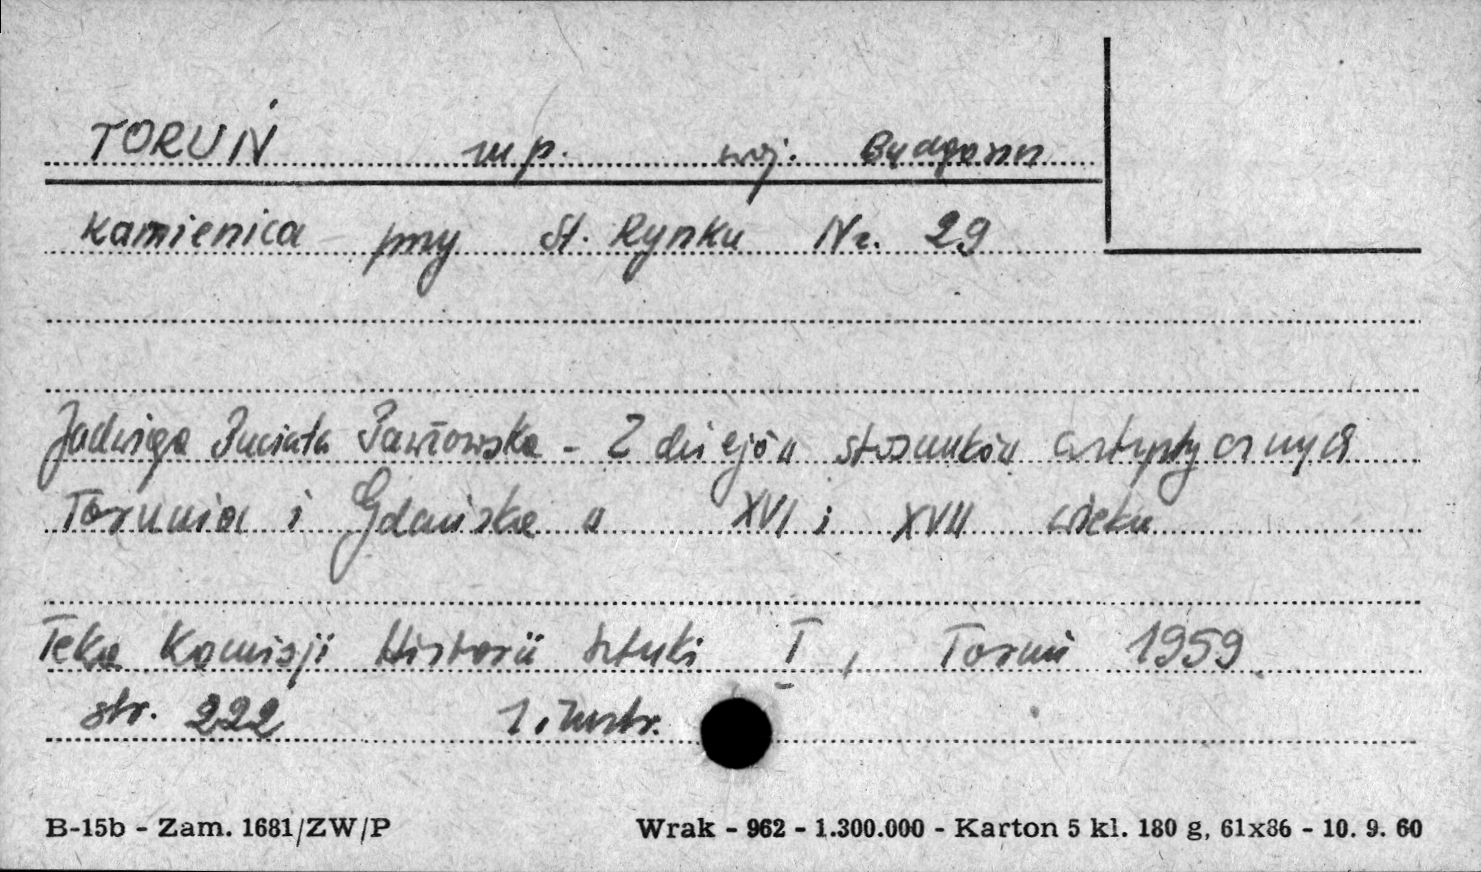 TORUŃ m.p. woj. Bydgoszcz
Kamienica przy St. Rynku Nr. 29
Jadwiga Puciata Pawłowska - Z dziejów stosunków artystycznych
Torunia i Gdańska w XVI i XVII wieku
Teka Komisji Historii Sztuki I, Toruń 1959
str. 222 1 ilustr.
B-15b - Zam. 1681/ZW/P Wrak - 962 - 1.300.000 - Karton 5 kl. 180 g, 61x86 - 10. 9. 60